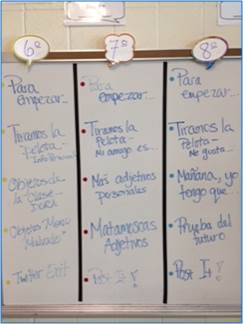 6º
Para
empezar...
Tiramos la
pelota-
Objetos de
la clase-
Objetos Menú
Twitter Exit
7º
Para
empezar...
Tiramos la
Pelota-
Mi amigo es...
Más adjetivos
personales
Matamoscas
Adjetivos
Post It!
8º
Para
empezar...
Tiramos la
Pelota-
Me gusta...
Mañana, yo
tengo que...
Prueba del
futuro
Post It!